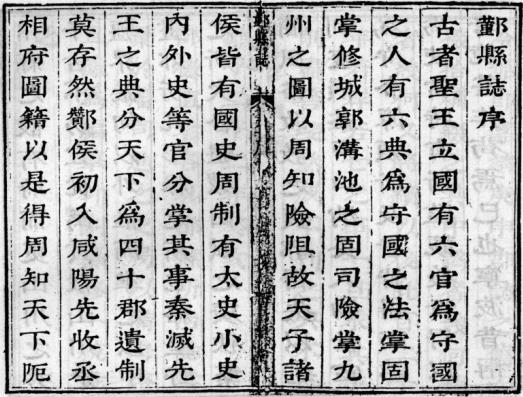 酃縣誌序
古者聖王立國有六官爲守國
之人有六典爲守國之法掌固
掌修城郭溝池之固司險掌九
州之圖以周知險阻故天子諸
酃縣誌
侯皆有國史周制有太史小史
內外史等官分掌其事秦滅先
王之典分天下爲四十郡遺制
莫存然酇侯初入咸陽先收丞
相府圖籍以是得周知天下阨